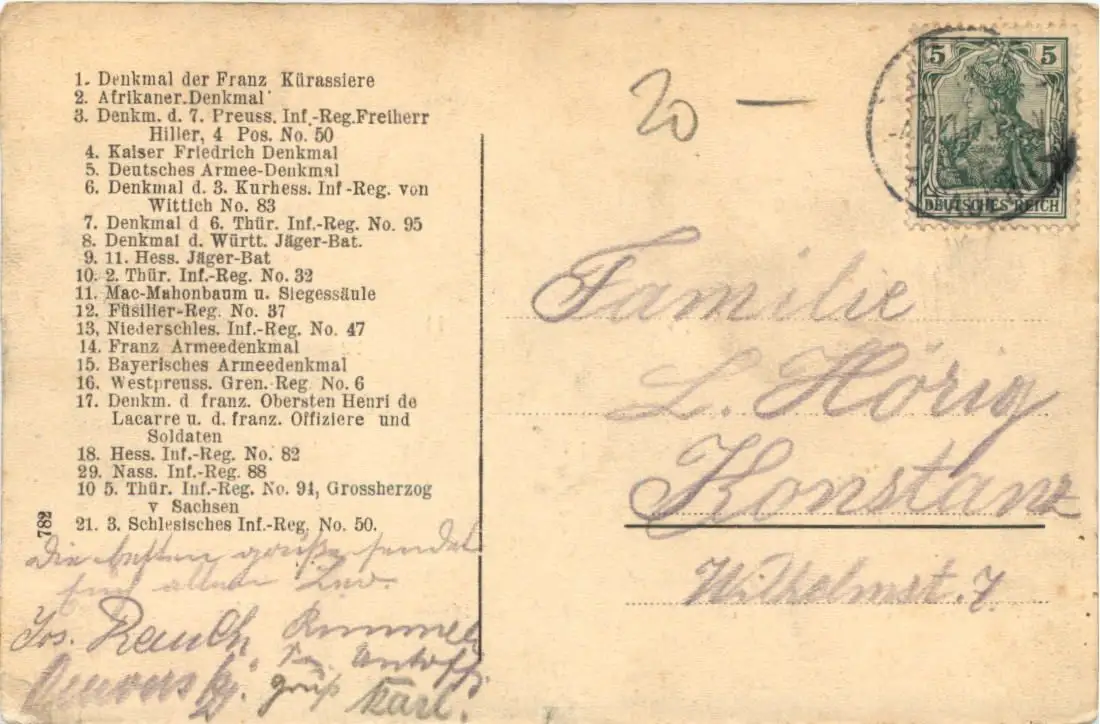 1. Denkmal der Franz Kürassiere
2. Afrikaner.Denkmal
3. Denkm. d. 7. Preuss. Inf.-Reg.Freiherr
Hiller, 4 Pos. No. 50
4. Kaiser Friedrich Denkmal
5. Deutsches Armee-Denkmal
6. Denkmal d. 3. Kurhess. Inf-Reg. von
Wittich No. 83
7. Denkmal d 6. Thür. Inf.-Reg. No. 95
8. Denkmal d. Württ. Jäger-Bat.
9. 11. Hess. Jäger-Bat
10. 2. Thür. Inf.-Reg. No. 32
11. Mac-Mahonbaum u. Siegessäule
12. Füsilier-Reg. No. 37
13, Niederschles. Inf.-Reg. No. 47
14. Franz Armeedenkmal
15. Bayerisches Armeedenkmal
16. Westpreuss. Gren.-Reg No. 6
17. Denkm. d franz. Obersten Henri de
Lacarre u. d. franz. Offiziere und
Soldaten
18. Hess. Inf.-Reg. No. 82
29. Nass. Inf.-Reg. 88
10 5. Thür. Inf.-Reg. No. 94, Grossherzog
v Sachsen
21. 3. Schlesisches Inf.-Reg. No. 50.
782
Die besten grüße sendet
allen
Jos. Rauch
gruß Karl.
20 —
5 5
DEUTSCHES REICH
Familie
L. Hörig
Konstanz
Wilhelmst. 7.